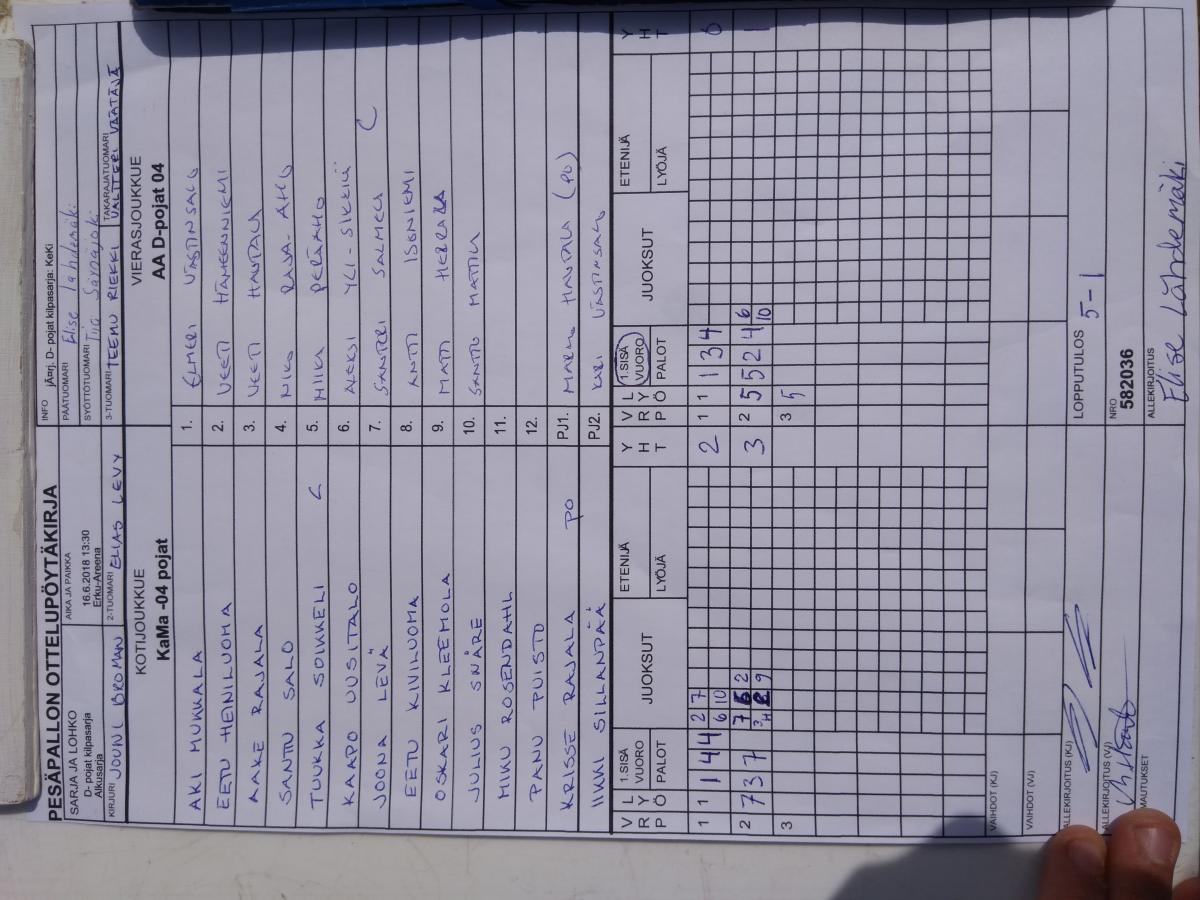 PESÄPALLON OTTELUPÖYTÄKIRJA
INFO jÄrrj. D-pojat kilpasarja: KeKi
SARJA JA LOHKO
D- pojat kilpasarja
Alkusarja
AIKA JA PAIKKA
16.6.2018 13:30
Erku-Areena
PÄÄTUOMARI Elise Lähdemäki
SYÖTTÖTUOMARI Tiia Sarajoki
KIRJURI JOUNI BROMAN
2-TUOMARI ELIAS LEVY
3-TUOMARI TEEMU RIEKKI
TAKARAJATUOMARI VALTTERI VÄÄTÄJÄ
KOTIJOUKKUE
KaMa -04 pojat
VIERASJOUKKUE
AA D-pojat 04
AKI MUKKALA 1. ELMERI VÄSTINSALO
EETU HEINILUOMA 2. VEETI HÄMEENNIEMI
AAKE RAJALA 3. VEETI HAUTALA
SANTU SALO 4. NIKO RAJA-AHO
TUUKKA SOIKKELI C 5. MIIKA PERÄAHO
KAAPO UUSITALO 6. ALEKSI YLI-SIKKILÄ
JOONA LEVÄ 7. SANTERI SALMELA C
EETU KIVILUOMA 8. ANTTI ISONIEMI
OSKARI KLEEMOLA 9. MATTI HERRALA
JULIUS SNÅRE 10. SANTTU MATTILA
MIKU ROSENDAHL 11.
PANU PUISTO 12.
KRISSE RAJALA PO PJ1. MARKO HAUTALA (PO)
IIKKI SILLANPÄÄ PJ2. KARI VÄSTINSALO
V R L Y P Ö 1.SISÄ VUORO PALOT JUOKSUT ETENIJÄ LYÖJÄ Y H T
V R L Y P Ö 1.SISÄ VUORO PALOT JUOKSUT ETENIJÄ LYÖJÄ Y H T
1 1 1 4 4 2 7 6 10 2
1 1 1 3 4 0
2 7 3 7 2 9 3
2 5 5 2 4 6 10 1
3
3 5
VAIHDOT (KJ)
VAIHDOT (VJ)
ALLEKIRJOITUS (KJ)
LOPPUTULOS 5-1
ALLEKIRJOITUS (VJ)
NRO
582036
HUOMAUTUKSET
ALLEKIRJOITUS
Elise Lähdemäki